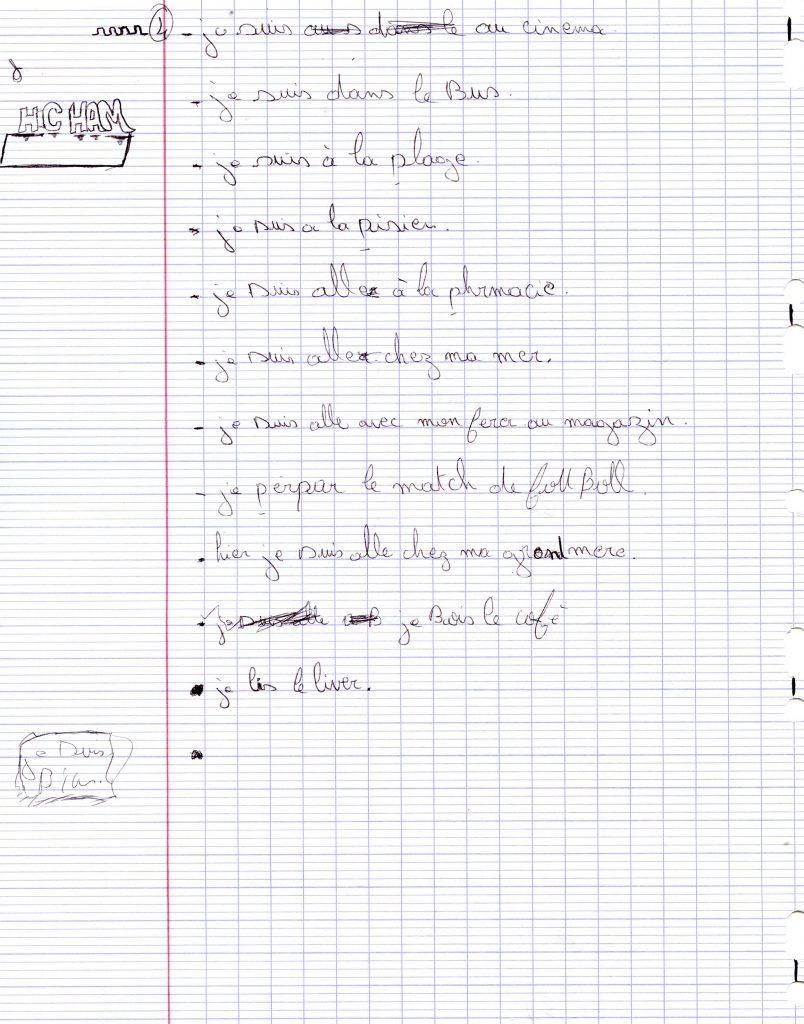 2 - je suis au cinema.
- je suis dans le Bus.
HICHAM
- je suis à la plage.
- je suis a la pisien.
- je suis alle à la phrmacie.
- je suis alle chez ma mer.
- je suis alle avec mon ferer au magazin.
- je perpar le match de foll Boll.
- hier je suis alle chez ma grontmere.
- je Bois le cofé
- je lis le liver.
je suis
Bien.